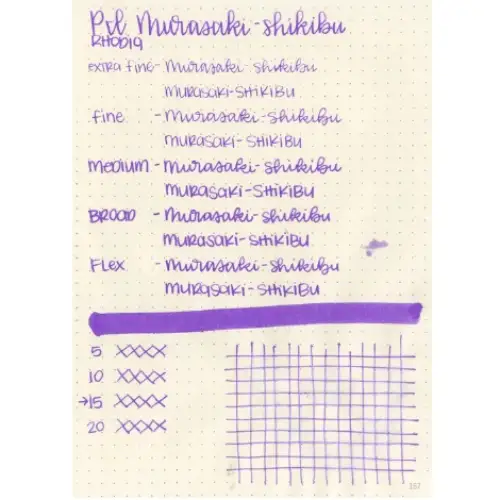 Pil Murasaki-shikibu
RHODIA
EXTRA FINE- Murasaki-shikibu
MURASAKI-SHIKIBU
fine - Murasaki-shikibu
MURASAKI-SHIKIBU
MEDIUM - Murasaki-shikibu
MURASAKI-SHIKIBU
BROAD - Murasaki-shikibu
MURASAKI-SHIKIBU
FLEX - Murasaki-shikibu
MURASAKI-SHIKIBU
5 XXXX
10 XXXX
→15 XXXX
20 XXXX
167